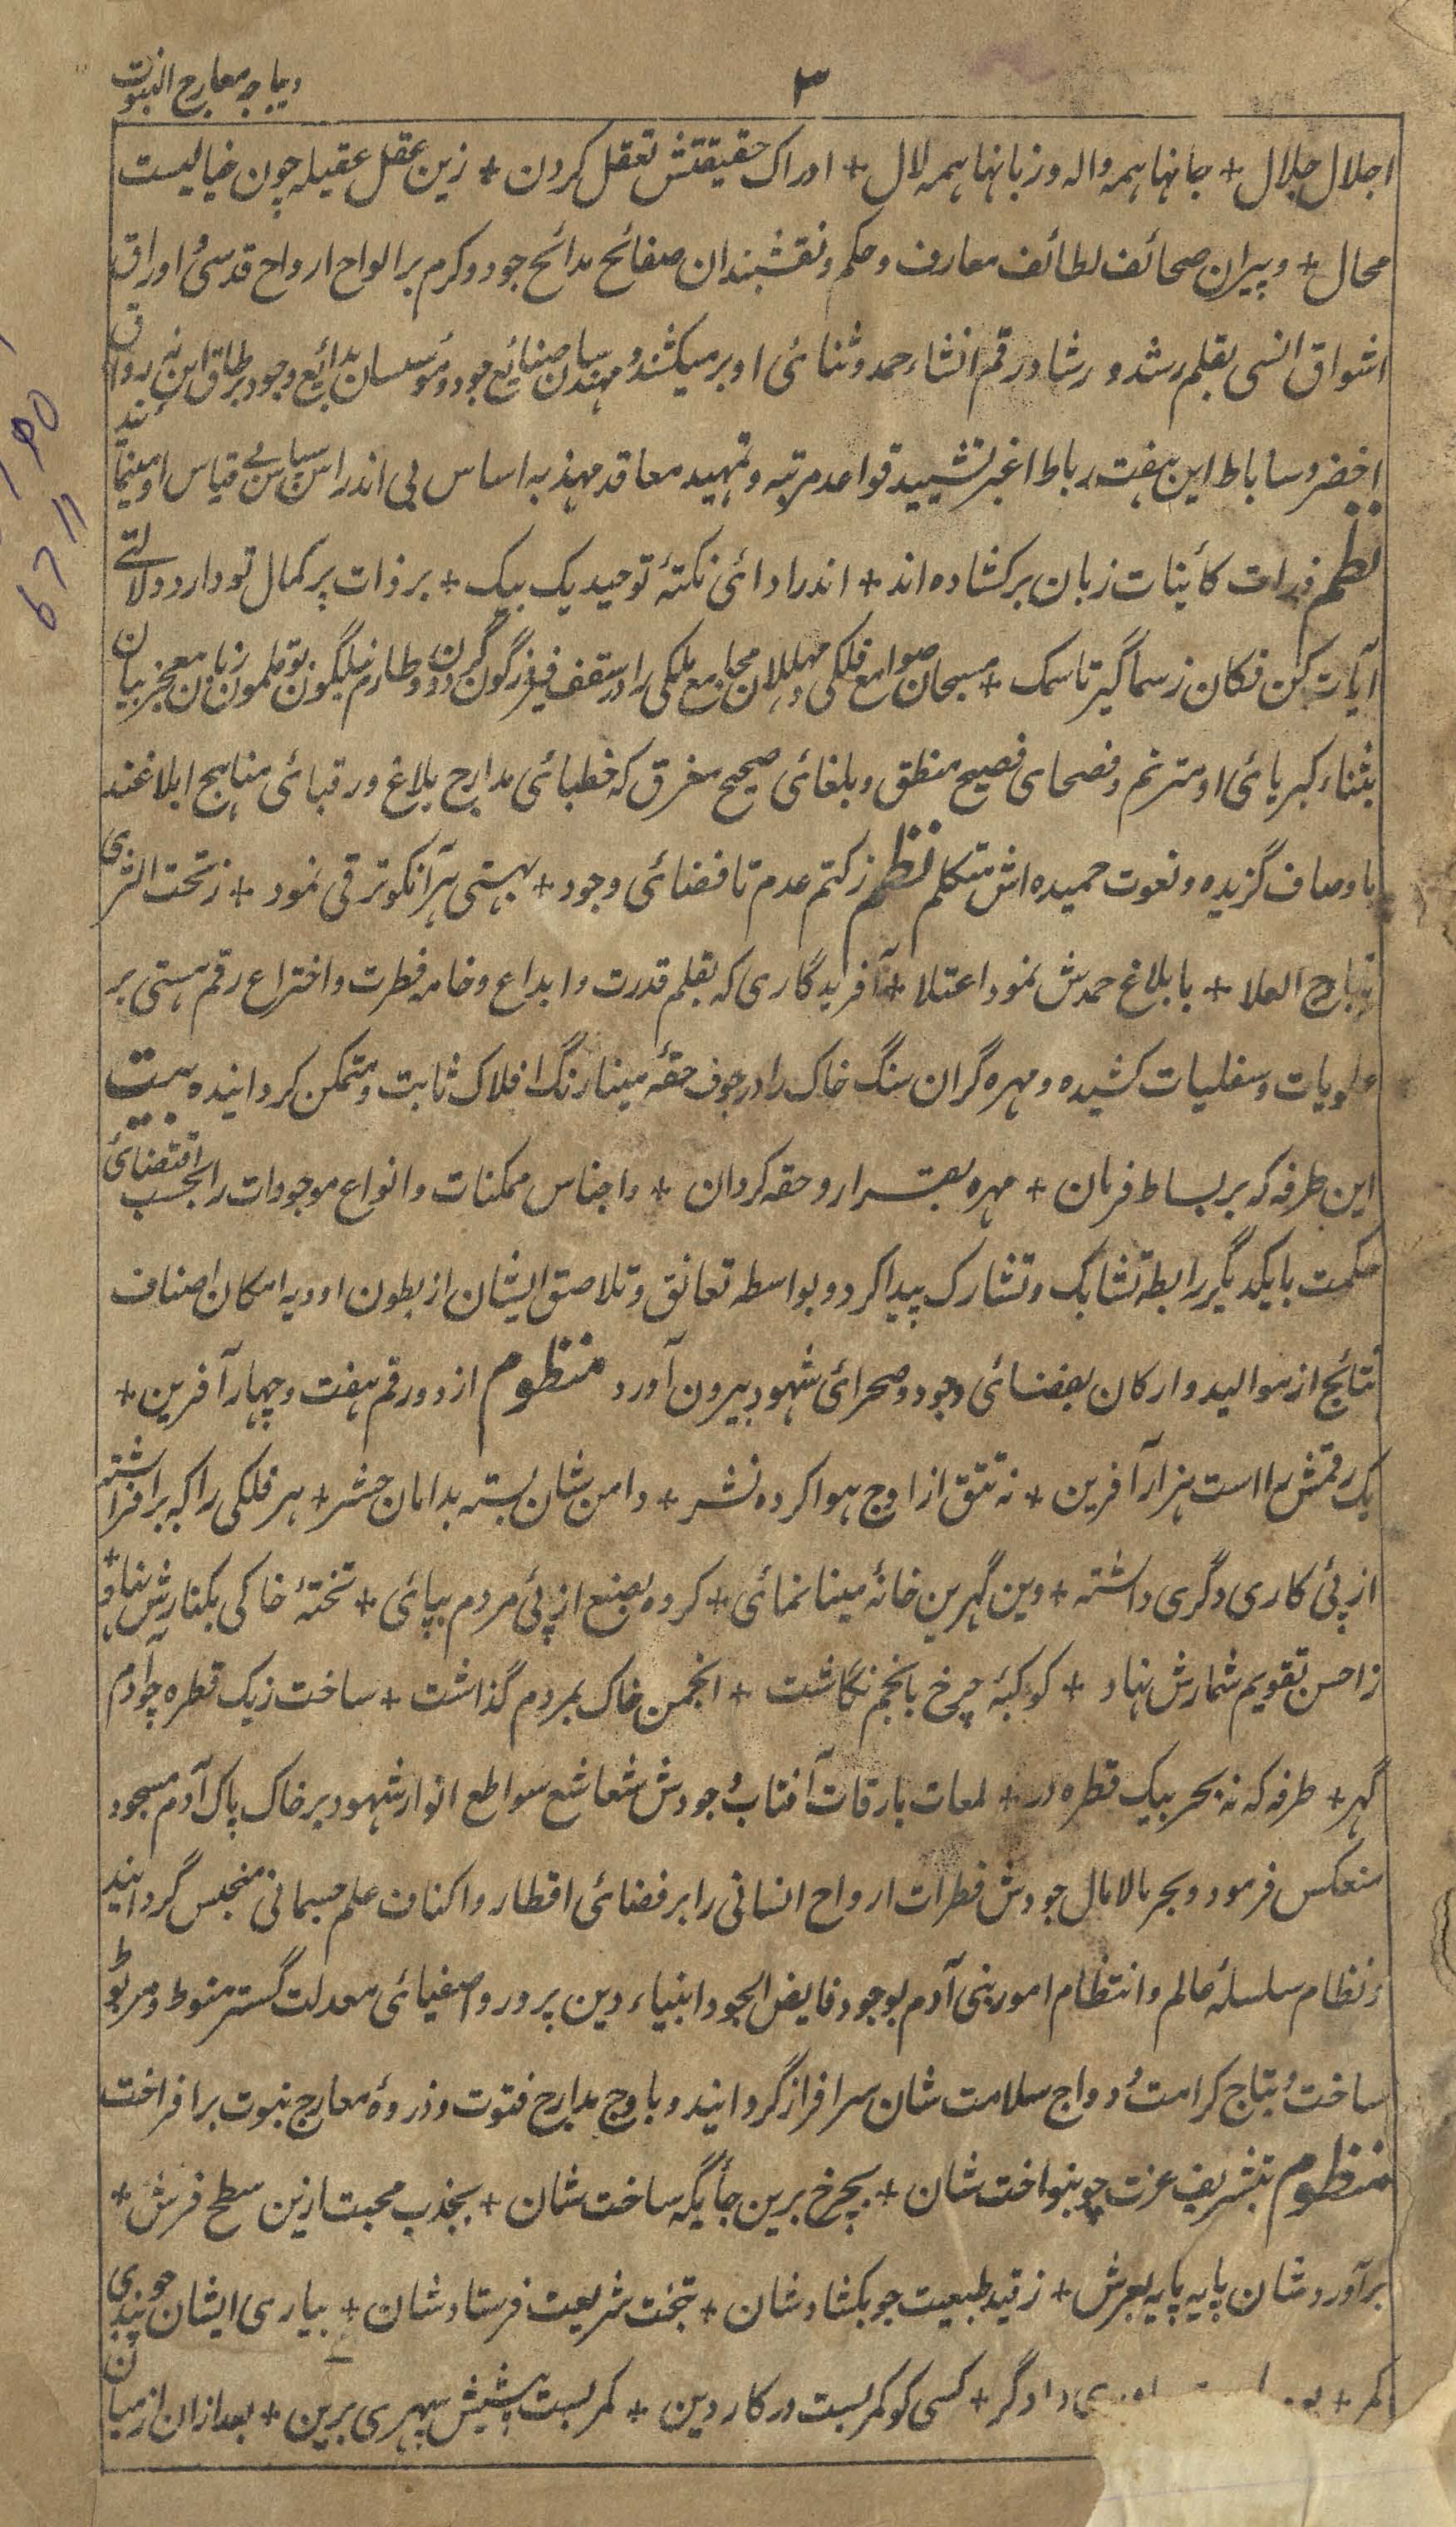 ۳
دیباچه معارج النبوت
اجلال جلال + جانها همه واله و زبانها همه لال + ادراک حقیقتش تعقل کردن + زین عقل عقیله چون خیالیست
محال + دبیران صحائف لطائف معارف و حکم و نقشبندان صفائح مدائح جود و کرم بر الواح ارواح قدسی و اوراق
اشواق انسی بقلم رشد و رشاد رقم انشاء حمد و ثنائی او بر میکشند و مهندسان صنایع جود و مؤسسان بدائع وجود بر طاق این نه رواق
اخضر و ساباط این هفت رباط اغبر تشیید قواعد مرتبه و تمهید معاقد مهذبه اساس بی اندراس سپاس بی قیاس او مینمایند
نظم ذرات کائنات زبان بر کشاده اند + اندر ادائی نکتهٔ توحید یک بیک + بر ذات پر کمال تو دارد دلالتے
آیات کن فکان ز سما گیر تا سمک + مسبحان صوامع فلکی و مهللان مجامع ملکی را در سقف فیروزگون گردون و طارم نیلگون بوقلمون زبان معجز بیان
بثناء کبریائی او مترنم و فصحای فصیح منطق و بلغائی صحیح مغرق که خطبائی مدارج بلاغ و رقبائی مناهج ابلاغند
باوصاف گزیده و نعوت حمیده اش متکلم نظم ز کتم عدم تا فضائی وجود + بهستی هر آنکو ترقی نمود + ز تحت الثری
تا بارج العلا + بابلاغ حمدش نمود اعتلا + آفریدگاری که بقلم قدرت و ابداع و خامه فطرت و اختراع رقم هستی بر
علویات و سفلیات کشیده و مهره گران سنگ خاک را در جوف حقهٔ مینا رنگ افلاک ثابت و متمکن گردانیده بیت
این طرفه که بر بساط فرمان + مهره بقرار و حقه گردان + و اجناس ممکنات و انواع موجودات را بحسب اقتضائی
حکمت بایکدیگر رابطه تشابک و تشارک پیدا کرد و بواسطه تعانق و تلاصق ایشان از بطون اودیه امکان اصناف
نتائج از موالید و ارکان بفضائی وجود و صحرائی شهود بیرون آورد منظوم از دو رقم هفت و چهار آفرین +
یک رقمش را است هزار آفرین + نه تتق از اوج هوا کرده نشر + دامن شان بسته بدامان حشر + هر فلکی را که بر افراشته
از پئی کاری دگری داشته + وین گهرین خانهٔ مینا نمائی + کرده بصنع از پئی مردم بپائی + تختهٔ خاکی بکنارش نهاد +
ز احسن تقویم شمارش نهاد + کوکبهٔ چرخ بانجم نگاشت + انجمن خاک بمردم گذاشت + ساخت ز یک قطره چو آدم
گهر + طرفه که نه بحر بیک قطره در + لمعات بارقات آفتاب وجودش شعاشع سواطع انوار شهود بر خاک پاک آدم مسجود
منعکس فرمود و بحر مالامال جودش قطرات ارواح انسانی را بر فضائی اقطار و اکناف علم جسمانی منبجس گردانید
و نظام سلسلهٔ عالم و انتظام امور بنی آدم بوجود فایض الجود انبیاء دین پرور و اصفیائی معدلت گستر منوط و مربوط
ساخت و بتاج کرامت و دواج سلامت شان سرافراز گردانید و باوج مدارج فتوت و ذروهٔ معارج نبوت بر افراخت
منظوم بتشریف عزت چو بنواخت شان + بچرخ برین جائگه ساخت شان + بجذب محبت ازین سطح فرش +
بر آورد شان پایه پایه بعرش + ز قید طبیعت چو بکشاد شان + بتخت شریعت فرستاد شان + بیاری ایشان چو بندی
کمر + دادگر + کسی کو کمر بست در کار دین + کمر بست پیشش سپهری برین + بعد ازان از میان